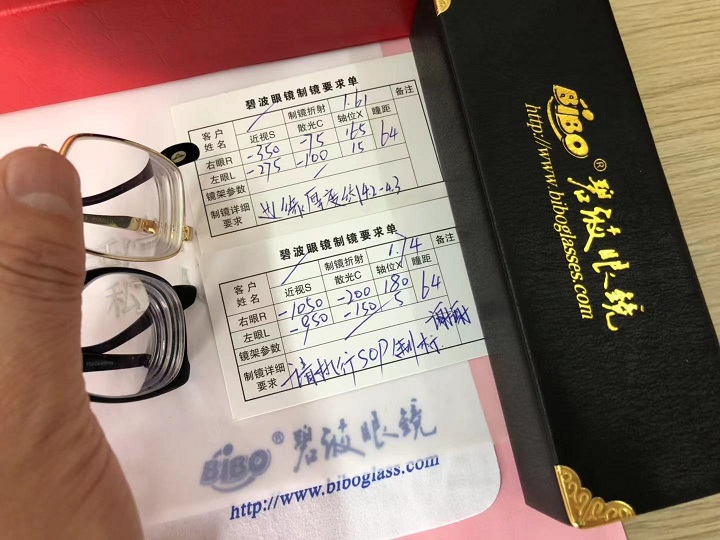 碧波眼镜制镜要求单
客户姓名 制镜折射 1.61 备注
近视S 散光C 轴位X 瞳距
右眼R -350 -75 165 64
左眼L -275 -100 15
镜架参数
制镜详细要求 4.2-4.3
碧波眼镜制镜要求单
客户姓名 制镜折射 1.74 备注
近视S 散光C 轴位X 瞳距
右眼R -1050 -200 180 64
左眼L -950 -150 5
镜架参数 谢谢
制镜详细要求 请执行SOP制标
BiBO® 碧波眼镜
http://www.biboglass.com
BiBO® 碧波眼镜
http://www.biboglasses.com
私人